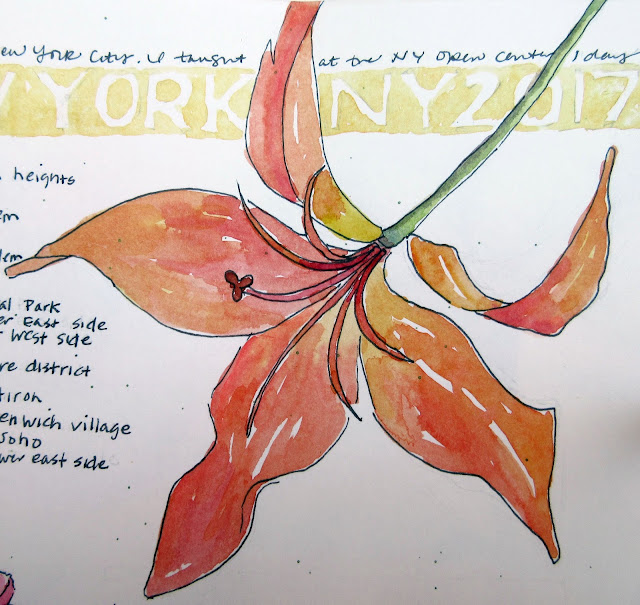 ew York City. I taught at the NY Open Center, 1 day
YORK NY 2017
heights
em
lem
al Park
er East side
r West side
re district
tiron
enwich village
Soho
wer east side